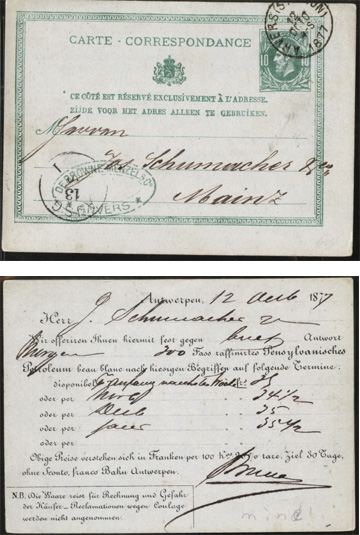 CARTE - CORRESPONDANCE
ANVERS (STATION)
12
1877
10
CE CÔTÉ EST RÉSERVÉ EXCLUSIVEMENT À L'ADRESSE.
ZIJDE VOOR HET ADRES ALLEEN TE GEBRUIKEN.
Herren
Jos Schumacher & Co
Mainz
DE BROUWER WENZEL & Co
ANVERS
13
Antwerpen, 12 1877
Herr J. Schumacher
Wir offeriren Ihnen hiermit fest gegen brief Antwort
Morgen 300 Fass raffinirtes Pensylvanisches
Petroleum beau blanc nach hiesigen Begriffen auf folgende Termine:
disponibel
oder per 34 1/2
oder per 35
oder per 35 1/2
Obige Preise verstehen sich in Franken per 100 Ko. 20% rare, Ziel 30 Tage,
ohne Sconto, franco Bahn Antwerpen.
N.B. Die Waare reist für Rechnung und Gefahr
der Käufer - Reclamationen wegen Coulage
werden nicht angenommen.